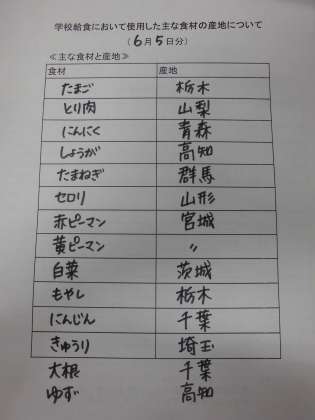 学校給食において使用した主な食材の産地について
(6月5日分)
≪主な食材と産地≫
食材 産地
たまご 栃木
とり肉 山梨
にんにく 青森
しょうが 高知
たまねぎ 群馬
セロリ 山形
赤ピーマン 宮城
黄ピーマン 〃
白菜 茨城
もやし 栃木
にんじん 千葉
きゅうり 埼玉
大根 千葉
ゆず 高知